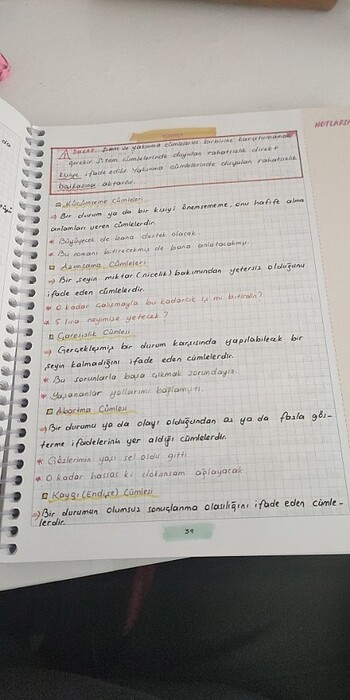 NOTLARIM
DİKKAT: Sitem ve yakınma cümlelerini birbirine karıştırmamak
gerekir. Sitem cümlelerinde duyulan rahatsızlık direkt
kişiye ifade edilir. Yakınma cümlelerinde duyulan rahatsızlık
başkasına aktarılır.
Küçümseme Cümleleri
→ Bir durum ya da bir kişiyi önemsememe, onu hafife alma
anlamları veren cümlelerdir.
* Büyüyecek de bana destek olacak.
* Bu romanı bitirecekmiş de bana anlatacakmış.
Azımsama Cümleleri
→ Bir şeyin miktar (nicelik) bakımından yetersiz olduğunu
ifade eden cümlelerdir.
* O kadar çalışmayla bu kadarcık iş mi bitirdin?
* 5 lira neyimize yetecek?
Çaresizlik Cümlesi
→ Gerçekleşmiş bir durum karşısında yapılabilecek bir
şeyin kalmadığını ifade eden cümlelerdir.
* Bu sorunlarla başa çıkmak zorundayız.
* Yaşananlar yollarımı bağlamıştı.
Abartma Cümlesi
→ Bir durumu ya da olayı olduğundan az ya da fazla gös-
terme ifadelerinin yer aldığı cümlelerdir.
* Gözlerimin yaşı sel oldu gitti.
* O kadar hassas ki dokunsam ağlayacak.
Kaygı (Endişe) Cümlesi
→ Bir durumun olumsuz sonuçlanma olasılığını ifade eden cümle-
lerdir.
39